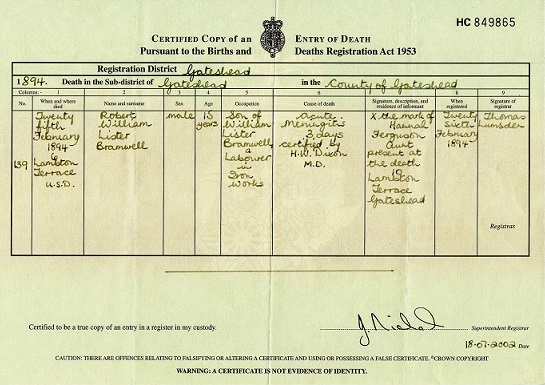 HC 849865
CERTIFIED COPY of an ENTRY OF DEATH
Pursuant to the Births and Deaths Registration Act 1953
Registration District Gateshead
1894. Death in the Sub-district of Gateshead in the County of Gateshead
Columns:- 1 2 3 4 5 6 7 8 9
No. When and where died Name and surname Sex Age Occupation Cause of death Signature, description, and residence of informant When registered Signature of registrar
139
Twenty
fifth
February
1894
6
Lambton
Terrace
U.S.D.
Robert
William
Lister
Bramwell
male
13
years
Son of
William
Lister
Bramwell
a
Labourer
in
Iron
Works
Acute
Meningitis
3 days
certified by
H.W. Dixon
M.D.
X the mark of
Hannah
Ferguson
Aunt
present at
the death
19
Lambton
Terrace
Gateshead
Twenty
sixth
February
1894
Thomas
Lumsden
Registrar
Certified to be a true copy of an entry in a register in my custody.
Superintendent Registrar
18-07-2002 Date
CAUTION: THERE ARE OFFENCES RELATING TO FALSIFYING OR ALTERING A CERTIFICATE AND USING OR POSSESSING A FALSE CERTIFICATE. ©CROWN COPYRIGHT
WARNING: A CERTIFICATE IS NOT EVIDENCE OF IDENTITY.